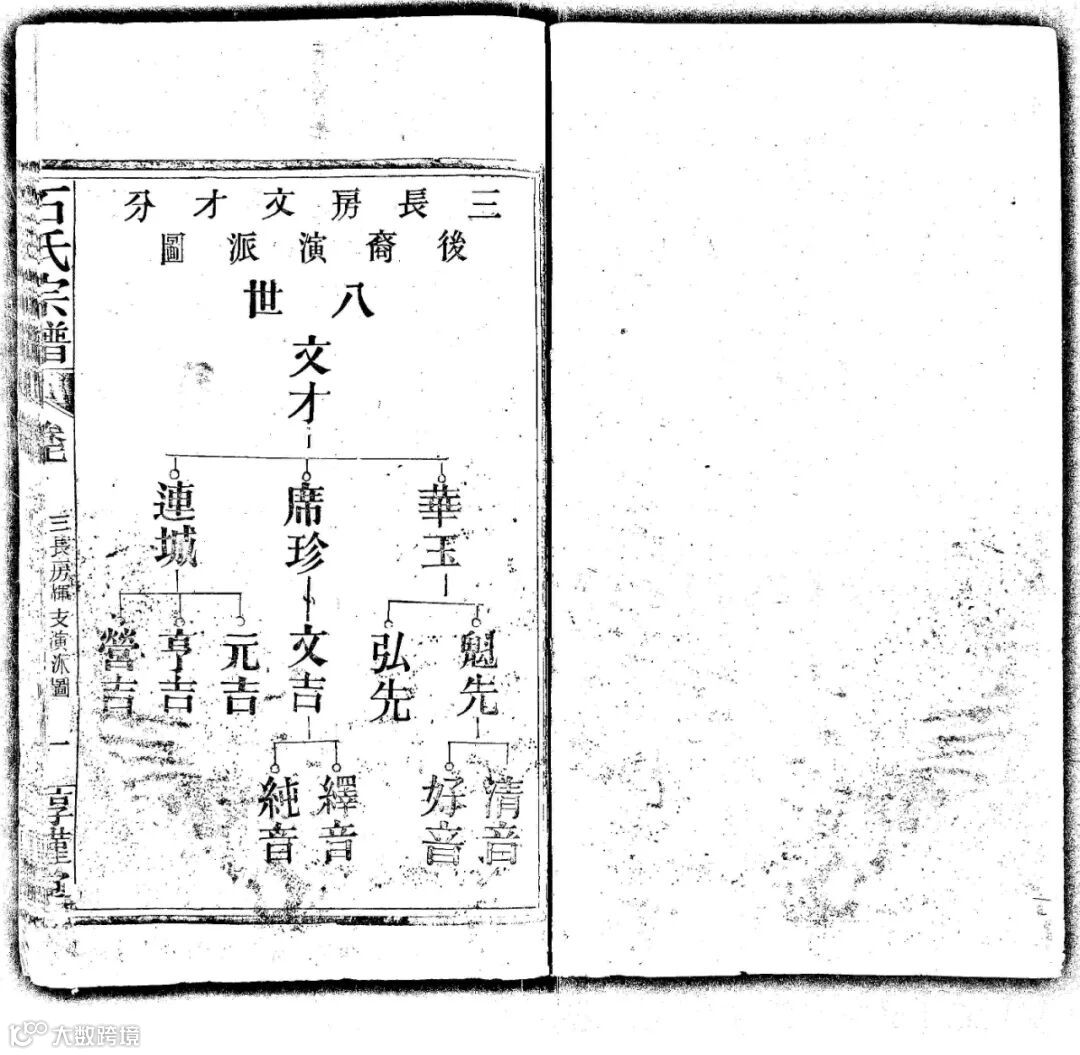 三長房文才分
後裔演派圖
八世
文才
華玉
席珍
連城
魁先
弘先
文吉
元吉
亨吉
營吉
清音
好音
繹音
純音
石氏宗譜
卷
三長房 支演派圖
一
大数跨境